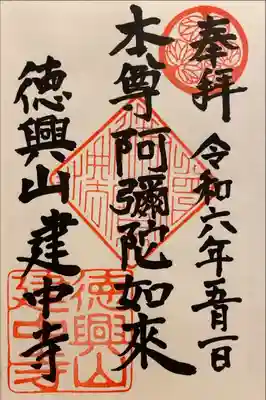 奉拝
令和六年五月一日
本尊阿彌陀如來
徳興山建中寺
徳興山
建中寺